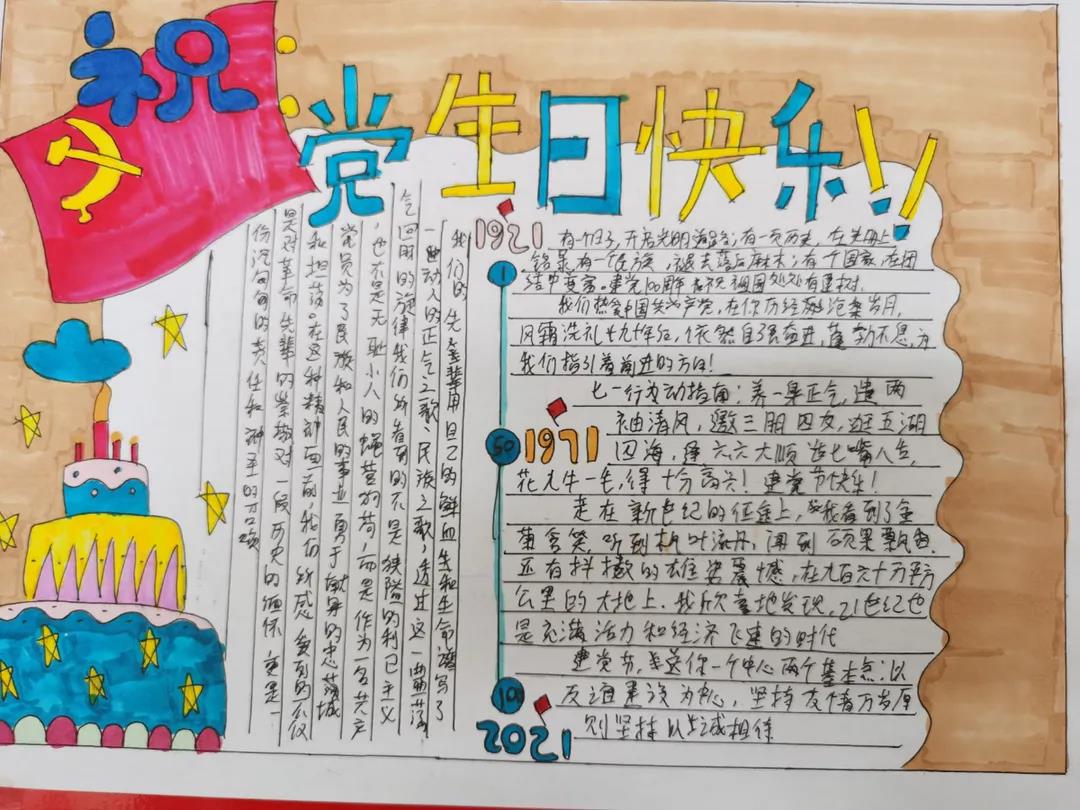 祝
党生日快乐!!
我们的先辈用自己的鲜血生和生命谱写了
一曲动人的正气之歌、民族之歌,透过这一曲曲荡
气回肠的旋律我们所看到的不是狭隘的利己主义
,也不是无耻小人的蝇营狗苟,而是作为一名共产
党员为了民族和人民的事业勇于献身的忠诚
和坦荡。在这种精神面前,我们所感受到的不仅
是对革命先辈的崇敬对一段历史的缅怀,更是一
份沉甸甸的责任和
1921
有一个日子,开启光明道路;有一页历史,在史册上
铭录,有一个民族,褪去落后麻木;有一个国家,在团
结中喜富。建党100周年
祖国处处有
我们热爱中国共产党,在你历经
沧桑岁月,
风霜洗礼
依然自强奋进,
不息,为
我们指引着前进的方向!
七一行为动指南:养一身正气,
两
袖清风,邀三朋四友,逛五湖
1971
四海,
六六大顺
七嘴人生,
花九牛一毛,得十分高兴!建党节快乐!
走在新世纪的征途上,我看到了金
菊含笑,听到枫叶流丹,闻到硕果飘香
还有抖擞的雄姿震憾,在九百六十万平方
公里的大地上,我欣喜地发现,21世纪也
是充满活力和经济飞速的时代
建党节,我送你一个中心两个基本点:以
友谊建设为中心,坚持友情万岁原
则坚持以
诚相待
1
50
100
2021